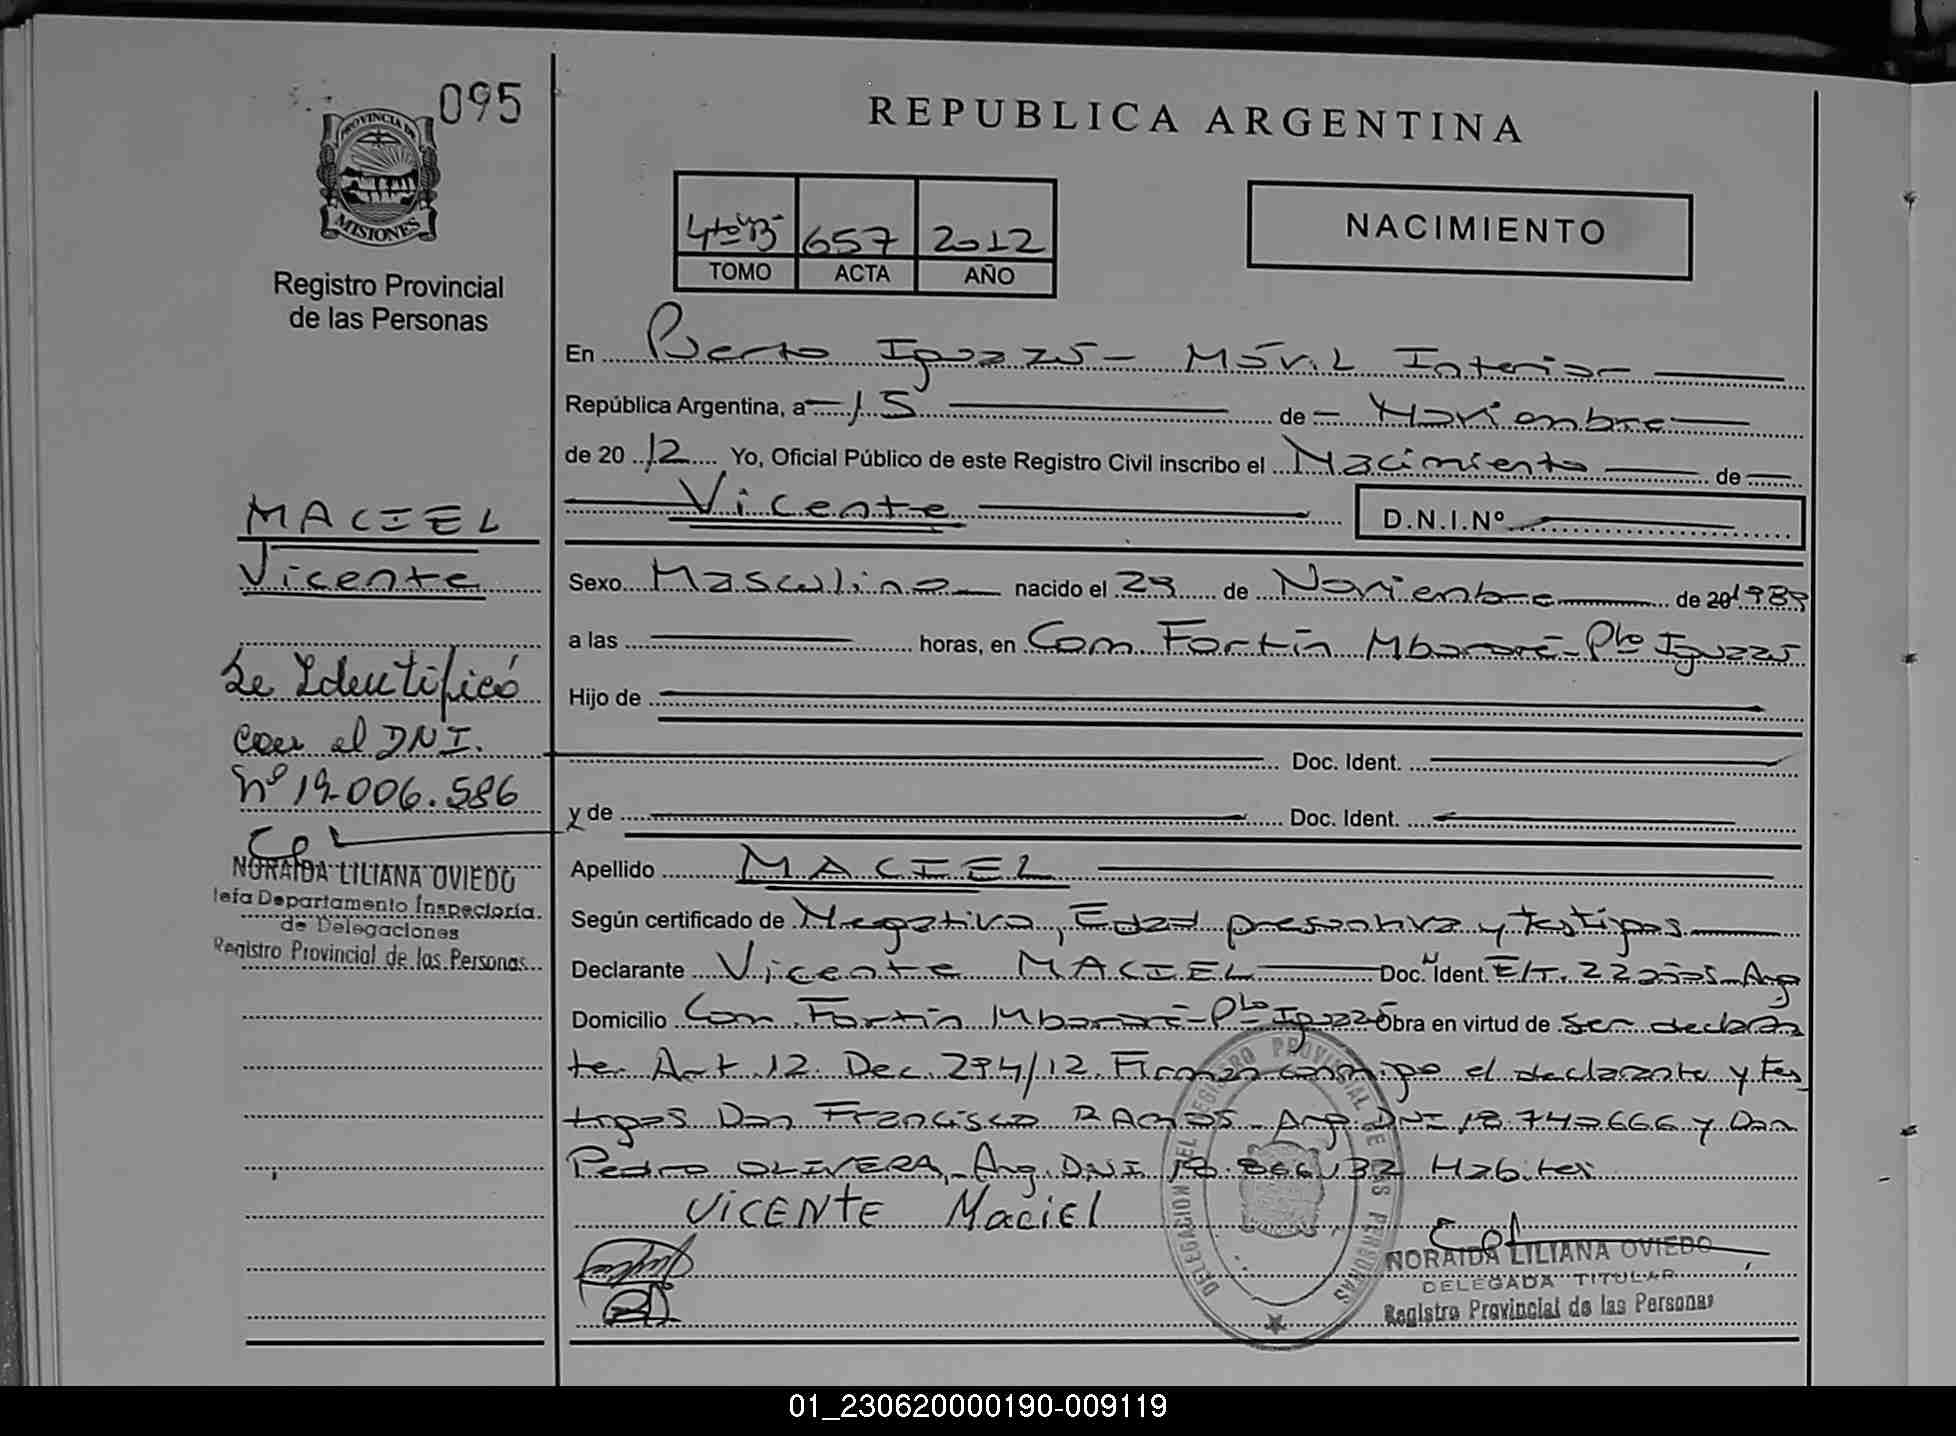 095
PROVINCIA DE
MISIONES
Registro Provincial
de las Personas
REPUBLICA ARGENTINA
4to "B" 657 2012
TOMO ACTA AÑO
NACIMIENTO
En Puerto Iguazú - Móvil Interior
República Argentina, a 15 de Noviembre
de 2012 Yo, Oficial Público de este Registro Civil inscribo el Nacimiento de
Vicente D.N.I.Nº
Sexo Masculino nacido el 29 de Noviembre de 20 1989
a las horas, en Com. Fortín Mbororé - Pto Iguazú
Hijo de
Doc. Ident.
y de Doc. Ident.
Apellido MACIEL
Según certificado de Negativa, Edad presuntiva y testigos
Declarante Vicente MACIEL Doc. Ident. E/T. Arg
Domicilio Com. Fortín Mbororé - Pto Iguazú Obra en virtud de ser declaran
te. Art. 12. Dec. 294/12. Firman conmigo el declarante y tes
tigos Don Francisco RAMOS - Arg. DNI 18.740.666 y Don
Pedro OLIVERA - Arg. D.N.I. 18. Habiter
VICENTE Maciel
DELEGACION DEL REGISTRO PROVINCIAL DE LAS PERSONAS
NORAIDA LILIANA OVIEDO
DELEGADA TITULAR
Registro Provincial de las Personas
MACIEL
Vicente
Se Identificó
con el DNI.
Nº 19.006.586
NORAIDA LILIANA OVIEDO
Jefa Departamento Inspectoria
de Delegaciones
Registro Provincial de las Personas
01_230620000190-009119